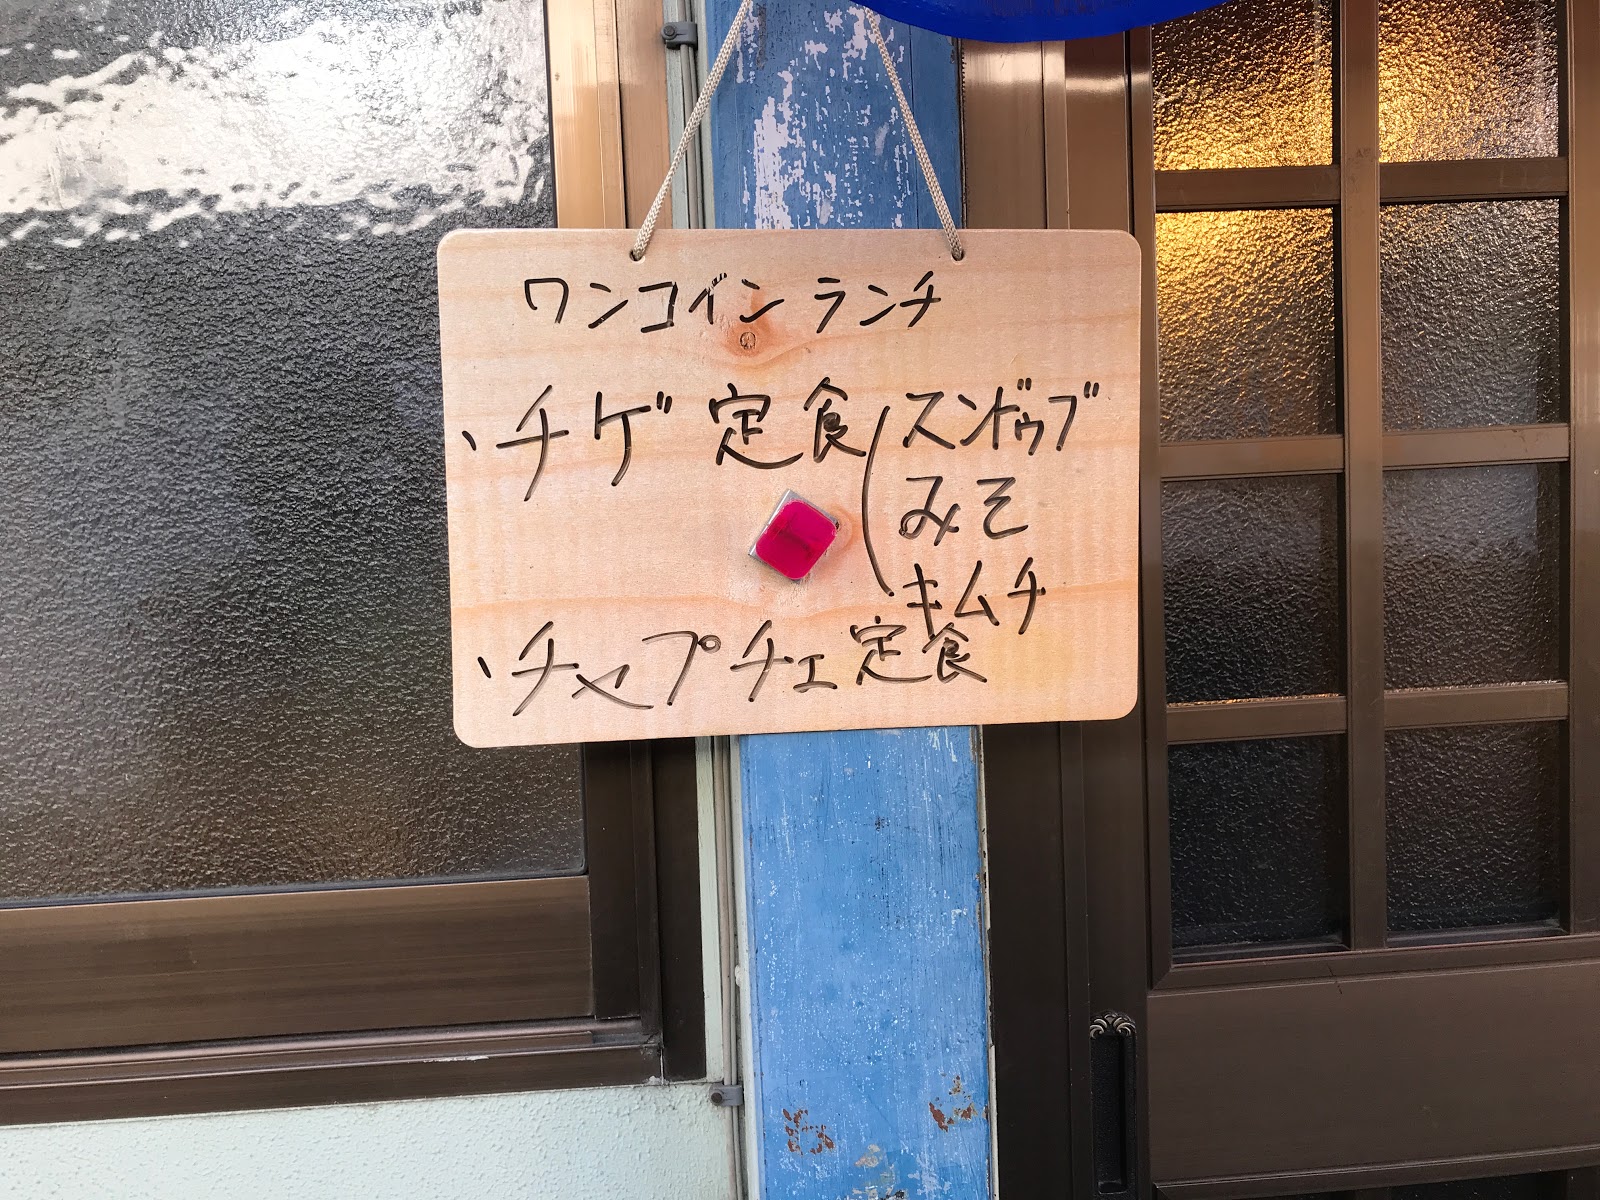 ワンコイン ランチ
・チゲ定食(スンドゥブ
みそ
キムチ
・チャプチェ定食